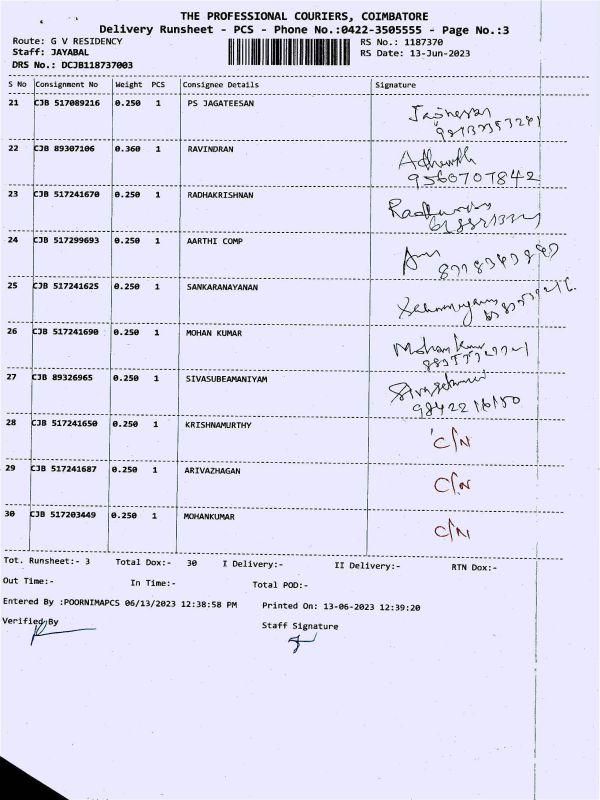 THE PROFESSIONAL COURIERS, COIMBATORE
Delivery Runsheet - PCS - Phone No.:0422-3505555 - Page No.:3
Route: G V RESIDENCY RS No.: 1187370
Staff: JAYABAL RS Date: 13-Jun-2023
DRS No.: DCJB118737003
S No Consignment No Weight PCS Consignee Details Signature
21 CJB 517089216 0.250 1 PS JAGATEESAN
22 CJB 89307106 0.360 1 RAVINDRAN
9560707842
23 CJB 517241670 0.250 1 RADHAKRISHNAN
24 CJB 517299693 0.250 1 AARTHI COMP
25 CJB 517241625 0.250 1 SANKARANAYANAN
26 CJB 517241690 0.250 1 MOHAN KUMAR
Mohan Kumar
27 CJB 89326965 0.250 1 SIVASUBEAMANIYAM
28 CJB 517241650 0.250 1 KRISHNAMURTHY C/N
29 CJB 517241687 0.250 1 ARIVAZHAGAN C/N
30 CJB 517203449 0.250 1 MOHANKUMAR C/N
Tot. Runsheet:- 3 Total Dox:- 30 I Delivery:- II Delivery:- RTN Dox:-
Out Time:- In Time:- Total POD:-
Entered By :POORNIMAPCS 06/13/2023 12:38:58 PM Printed On: 13-06-2023 12:39:20
Verified By Staff Signature